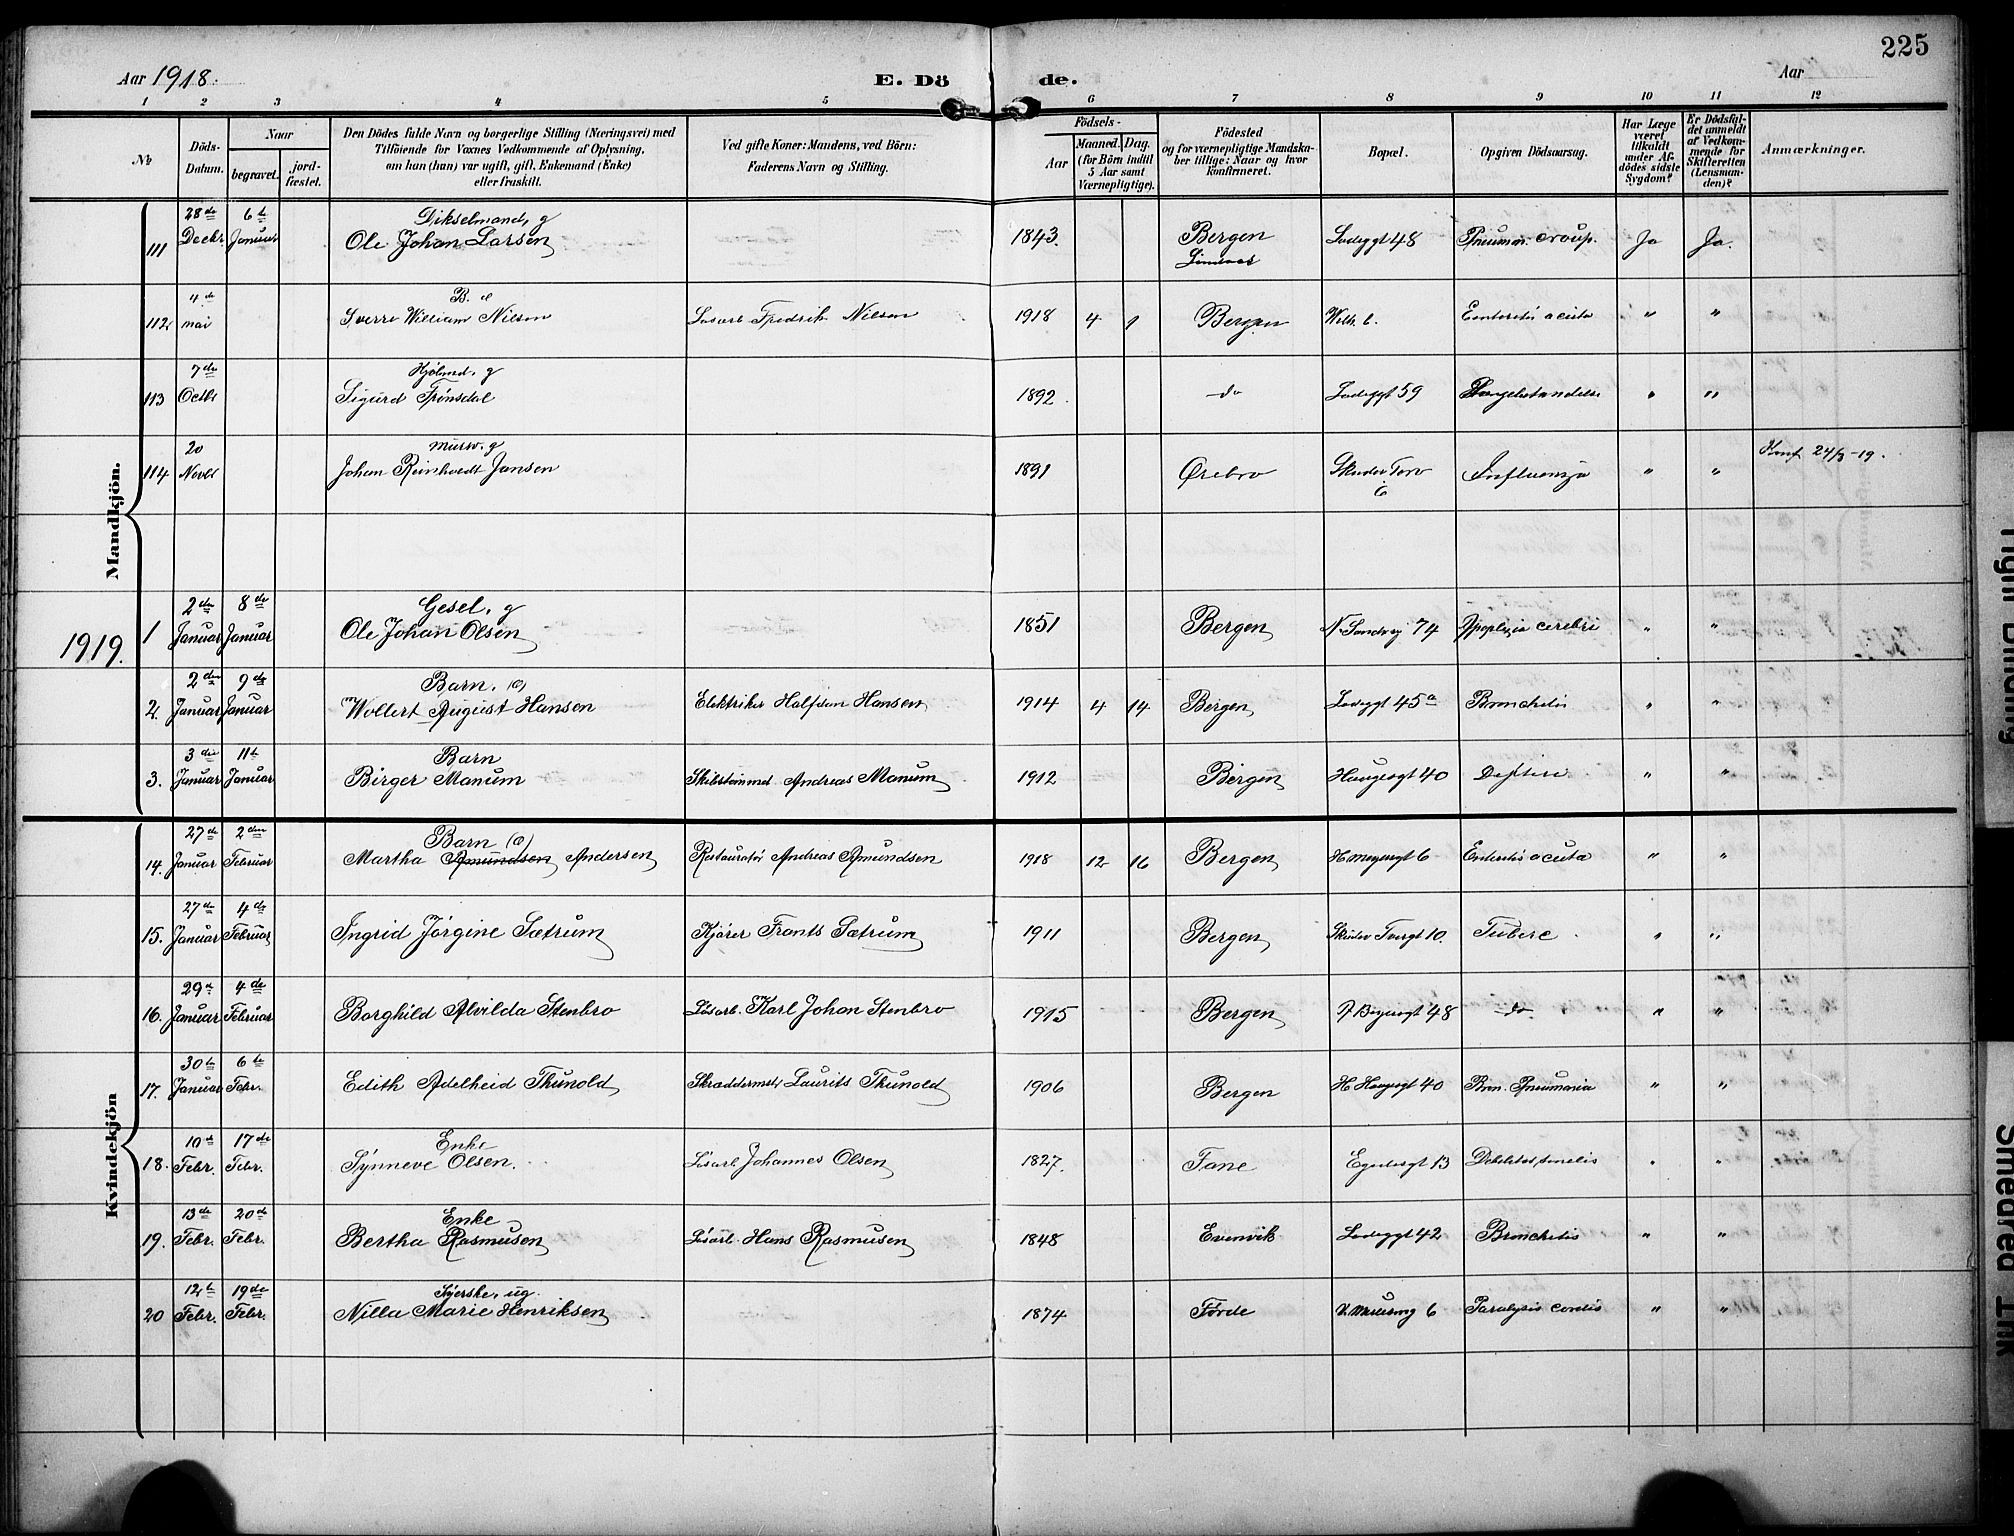 225
Aar 1918.
E. Dö de.
Aar
1 2 3 4 5 6 7 8 9 10 11 12
No
Döds-Datum.
Naar
begravet.
jord-fæstet.
Den Dödes fulde Navn og borgerlige Stilling (Næringsvei) med
Tilföiende for Voxnes Vedkommende af Oplysning,
om han (hun) var ugift, gift, Enkemand (Enke)
eller fraskilt.
Ved gifte Koner: Mandens, ved Börn:
Faderens Navn og Stilling.
Födsels-
Aar
Maaned. Dag.
(for Börn indtil
5 Aar samt
Værnepligtige).
Födested
og for værnepligtige Mandska-
ber tillige: Naar og hvor
konfirmeret.
Bopæl.
Opgiven Dödsaarsag.
Har Læge
været
tilkaldt
under Af-
dödes sidste
Sygdom?
Er Dödsfal-
det anmeldt
af Vedkom-
mende for
Skifteretten
(Lensman-
den)?
Anmærkninger.
Mandkjön.
28de 6te Dikselmand, g
111 Decbr Januar Ole Johan Larsen 1843. Bergen Ladeggt 48 Pneumon. croup. Ja Ja.
4de B.
112 mai Sverre William Nilsen Løsarb Fredrik Nilsen 1918 4 9 Bergen Wilh. 6. Enteritis acuta " "
7de g
113 Octbr Sigurd Frønsdal 1892. do Ladeggt 59 " "
20 g
114 Novbr Johan Reinholdt Jansen 1891 Ørebro Skuder Torv 6 Influensa " " Konf 24/3-19.
1919.
2den 8de Gesel, g
1 Januar Januar Ole Johan Olsen 1851 Bergen N. Sandvig 74 Apoplexia cerebri " "
2den 9de Barn.
2. Januar Januar Wollert August Hansen Elektriker Halfdan Hansen 1914 4 14 Bergen Ladeggt 45a Bronchitis " "
3die 11te Barn
3. Januar Januar Birger Manum Skibstømmm. Andreas Manum 1912 Bergen Haugesgt 40 Difteri " "
Kvindekjön
27de 2den Barn
14. Januar Februar Martha Amundsen Andersen Restauratør Andreas Amundsen 1918 12 16 Bergen H. Meyersgt 6 Enteritis acuta " "
27de 4de
15. Januar Februar Ingrid Jørgine Sætrum Kjører Frants Sætrum 1911 Bergen Skuder Tvergt 10. Tuberc. " "
29de 4de
16. Januar Februar Borghild Alvilda Stenbro Løsarb. Karl Johan Stenbro 1915 Bergen 48 do " "
30te 6te
17. Januar Febr. Edith Adelheid Thunold Skræddermstr Laurits Thunold 1906 Bergen H. Haugesgt 40 Bron. Pneumonia " "
10de 17de Enke
18. Febr. Febr. Synneve Olsen. Løsarb Johannes Olsen 1827. Fane Egedesgt 13 Debilitas senilis " "
13de 20de Enke
19. Febr. Febr. Bertha Rasmusen Løsarb. Hans Rasmusen 1848 Evenvik Ladeggt 42 Bronchitis " "
12te 19de Syerske, ug.
20 Febr. Febr. Nilla Marie Henriksen 1874 Førde 6 Paralysis cordis " "
Tight Binding
Smeared Ink